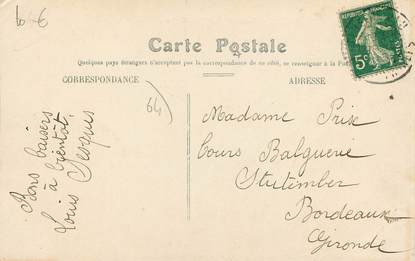 6-6
Carte Postale
Quelques pays étrangers n'acceptent pas la correspondance de ce côté, se renseigner à la Poste
CORRESPONDANCE
ADRESSE
64
RÉPUBLIQUE FRANÇAISE
5c
POSTES
Bons baisers
à bientôt
Louis
Madame Prise
Cours Balguerie
Stutember
Bordeaux
Gironde